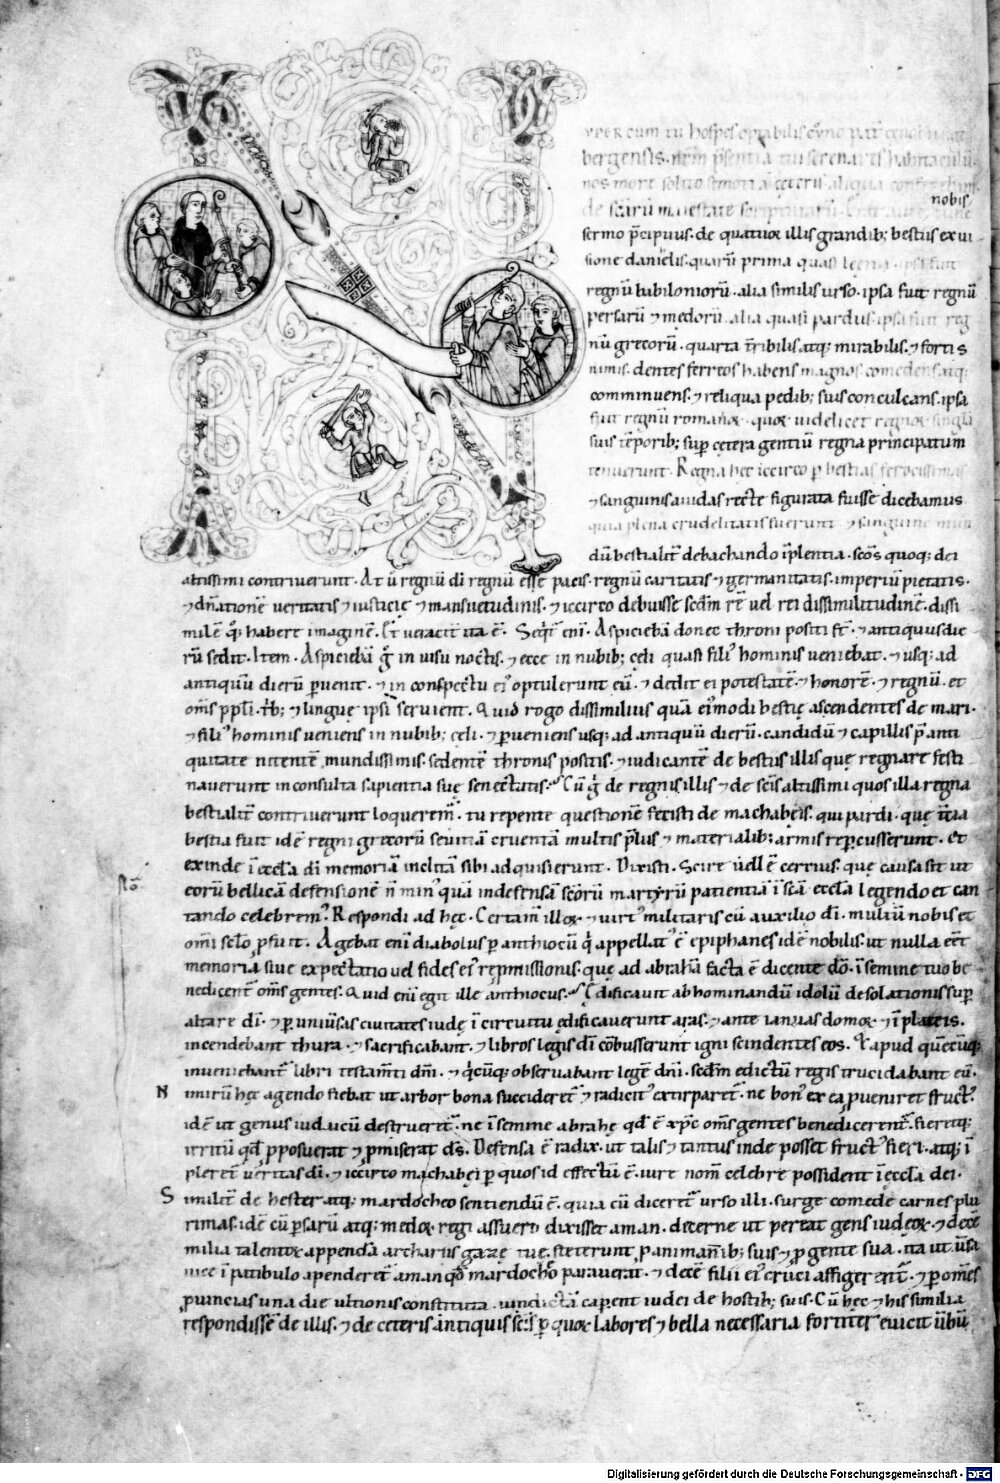 UPER cum tu hospes optabilis
bergensis. n̄r̄m p̄sentia tui serenaris habitaculū.
nos more solito aliqua
nobis
de sc̄arū maiestate scripturarū.
sermo p̄cipuus. de quatuor illis grandib; bestiis ex ui
sione danielis. quarū prima quasi leena. ipsa fuit
regnū babiloniorū. alia similis urso. ipsa fuit regnū
persarū ⁊ medorū. alia quasi pardus. ipsa fuit reg
nū grecorū. quarta t̄ribilis. atq; mirabilis. ⁊ fortis
nimis. dentes ferreos habens magnos. comedens atq;
comminuens. ⁊ reliqua pedib; suis conculcans. ipsa
fuit regnū romanoꝝ. quoꝝ uidelicet regnoꝝ singła
suis tēporib; suꝑ cętera gentiū regna principatum
tenuerunt. Regna hęc iccirco ꝑ bestias ferocissimas
⁊ sanguinis auidas recte figurata fuisse dicebamus
quia plena crudelitatis fuerunt. ⁊ sanguine mun
dū bestialit̄ debachando īplentia. sc̄os quoq; dei
altissimi contriuerunt. At ū regnū dī regnū esse pacis. regnū caritatis ⁊ germanitatis. imperiū pietatis.
⁊ dn̄ationē ueritatis ⁊ iusticię ⁊ mansuetudinis. ⁊ iccirco debuisse scd̄m rē uel rei dissimilitudinē. dissi
milē q̄ꝫ habere imaginē. Et ueracit̄ ita ē. Seqt̄ eni. Aspiciebā donec throni positi st̄. ⁊ antiquus die
rū sedit. Item. Aspiciebā g̊ in uisu noctis. ⁊ ecce in nubib; cęli quasi fili᾽ hominis ueniebat. ⁊ usq; ad
antiquū dierū ꝑuenit. ⁊ in conspectu ei᾽ optulerunt eū. ⁊ dedit ei potestatē. ⁊ honorē. ⁊ regnū. et
om̄s pp̄li. t̄b; ⁊ linguę ipsi seruient. Quid rogo dissimilius quā ei᾽modi bestię ascendentes de mari.
⁊ fili᾽ hominis ueniens in nubib; cęli. ⁊ ꝑueniens usq; ad antiquū dierū. candidū ⁊ capillis p̄ anti
quitate nitentē mundissimis. sedentē thronis positis. ⁊ iudicantē de bestiis illis quę regnare festi
nauerunt inconsulta sapientia suę senectutis. Cū g̊ de regnis illis ⁊ de sc̄is altissimi quos illa regna
bestialit̄ contriuerunt loqueremr̄. tu repente questionē fecisti de machabęis. qui pardi. que t̄cia
bestia fuit idē regni grecorū seuitiā cruentā multis p̄liis ⁊ materialib; armis reꝑcusserunt. Et
exinde ī ecc̄la dī memoriā inclitā sibi adquisierunt. Dixisti. Scire uelī ē cercius. quę causa sit ut
eorū bellicā defensionē n̄ min᾽ quā indefensā sc̄orū martyrū patientiā ī sc̄a ecc̄la legendo et can
tando celebrem᾽. Respondi ad hęc. Certam̄ illoꝝ. ⁊ uirt᾽ militaris cū auxilio dī. multū nobis et
omī sc̄lo ꝓfuit. Agebat eni diabolus ꝑ anthiocū q̄ appellat᾽ ē epiphanes idē nobilis. ut nulla eēt
memoria siue expectatio uel fides ei᾽ reꝓmissionis. quę ad abrahā facta ē dicente dn̄o. ī semine tuo be
nedicent̄ om̄s gentes. Quid eni egit ille anthiocus. Ędificauit abhominandū idolū desolationis suꝑ
altare dī. ⁊ ꝑ uniūsas ciuitates iudę ī circuitu ędificauerunt aras. ⁊ ante ianuas domoꝝ. ⁊ ī plateis.
incendebant thura. ⁊ sacrificabant. ⁊ libros legis dī cōbusserunt igni scindentes eos. Et apud quēcūq;
inueniebant̄ libri testam̄ti dn̄i. ⁊ q̄cūq; obseruabant legē dn̄i. scd̄m edictū regis trucidabant eū.
N imirū hęc agendo fiebat ut arbor bona succideret̄ ⁊ radicit᾽ extirparet̄. ne bon᾽ ex ea ꝓueniret fruct᾽.
idē ut genus iudaicū destrueret̄. ne ī semine abrahę qd̄ ē xp̄c om̄s gentes benedicerent̄. fieretq;
irritū qd̄ ꝓposuerat ⁊ ꝓmiserat ds̄. Defensa ē radix. ut talis ⁊ tantus inde posset fruct᾽ fieri. atq; ī
pleret̄ ueritas dī. ⁊ iccirco machabęi ꝑ quos id effectū ē. iure nom̄ celebre possident ī ecc̄la dei.
S imilit̄ de hester atq; mardocheo sentiendū ē. quia cū diceret̄ urso illi. surge comede carnes plu
rimas. idē cū ꝑsarū atq; medoꝝ regi assuero dixisset aman. decerne ut pereat gens iudęoꝝ. ⁊ decē
milia talentoꝝ appendā archariis gazę tuę. steterunt ꝓ animab; suis ⁊ ꝓ gente sua. ita ut ūsa
uice ī patibulo apenderet̄ aman qd̄ mardocheo parauerat. ⁊ decē filii ei᾽ cruci affigerent̄. ⁊ ꝑ om̄es
ꝓuincias una die ultionis constituta. uindictā caꝑent iudei de hostib; suis. Cū hęc ⁊ his similia
respondissē de illis. ⁊ de ceteris antiquis sc̄is ꝑ quoꝝ labores ⁊ bella necessaria fortiter euicit ūbū
Digitalisierung gefördert durch die Deutsche Forschungsgemeinschaft - DFG